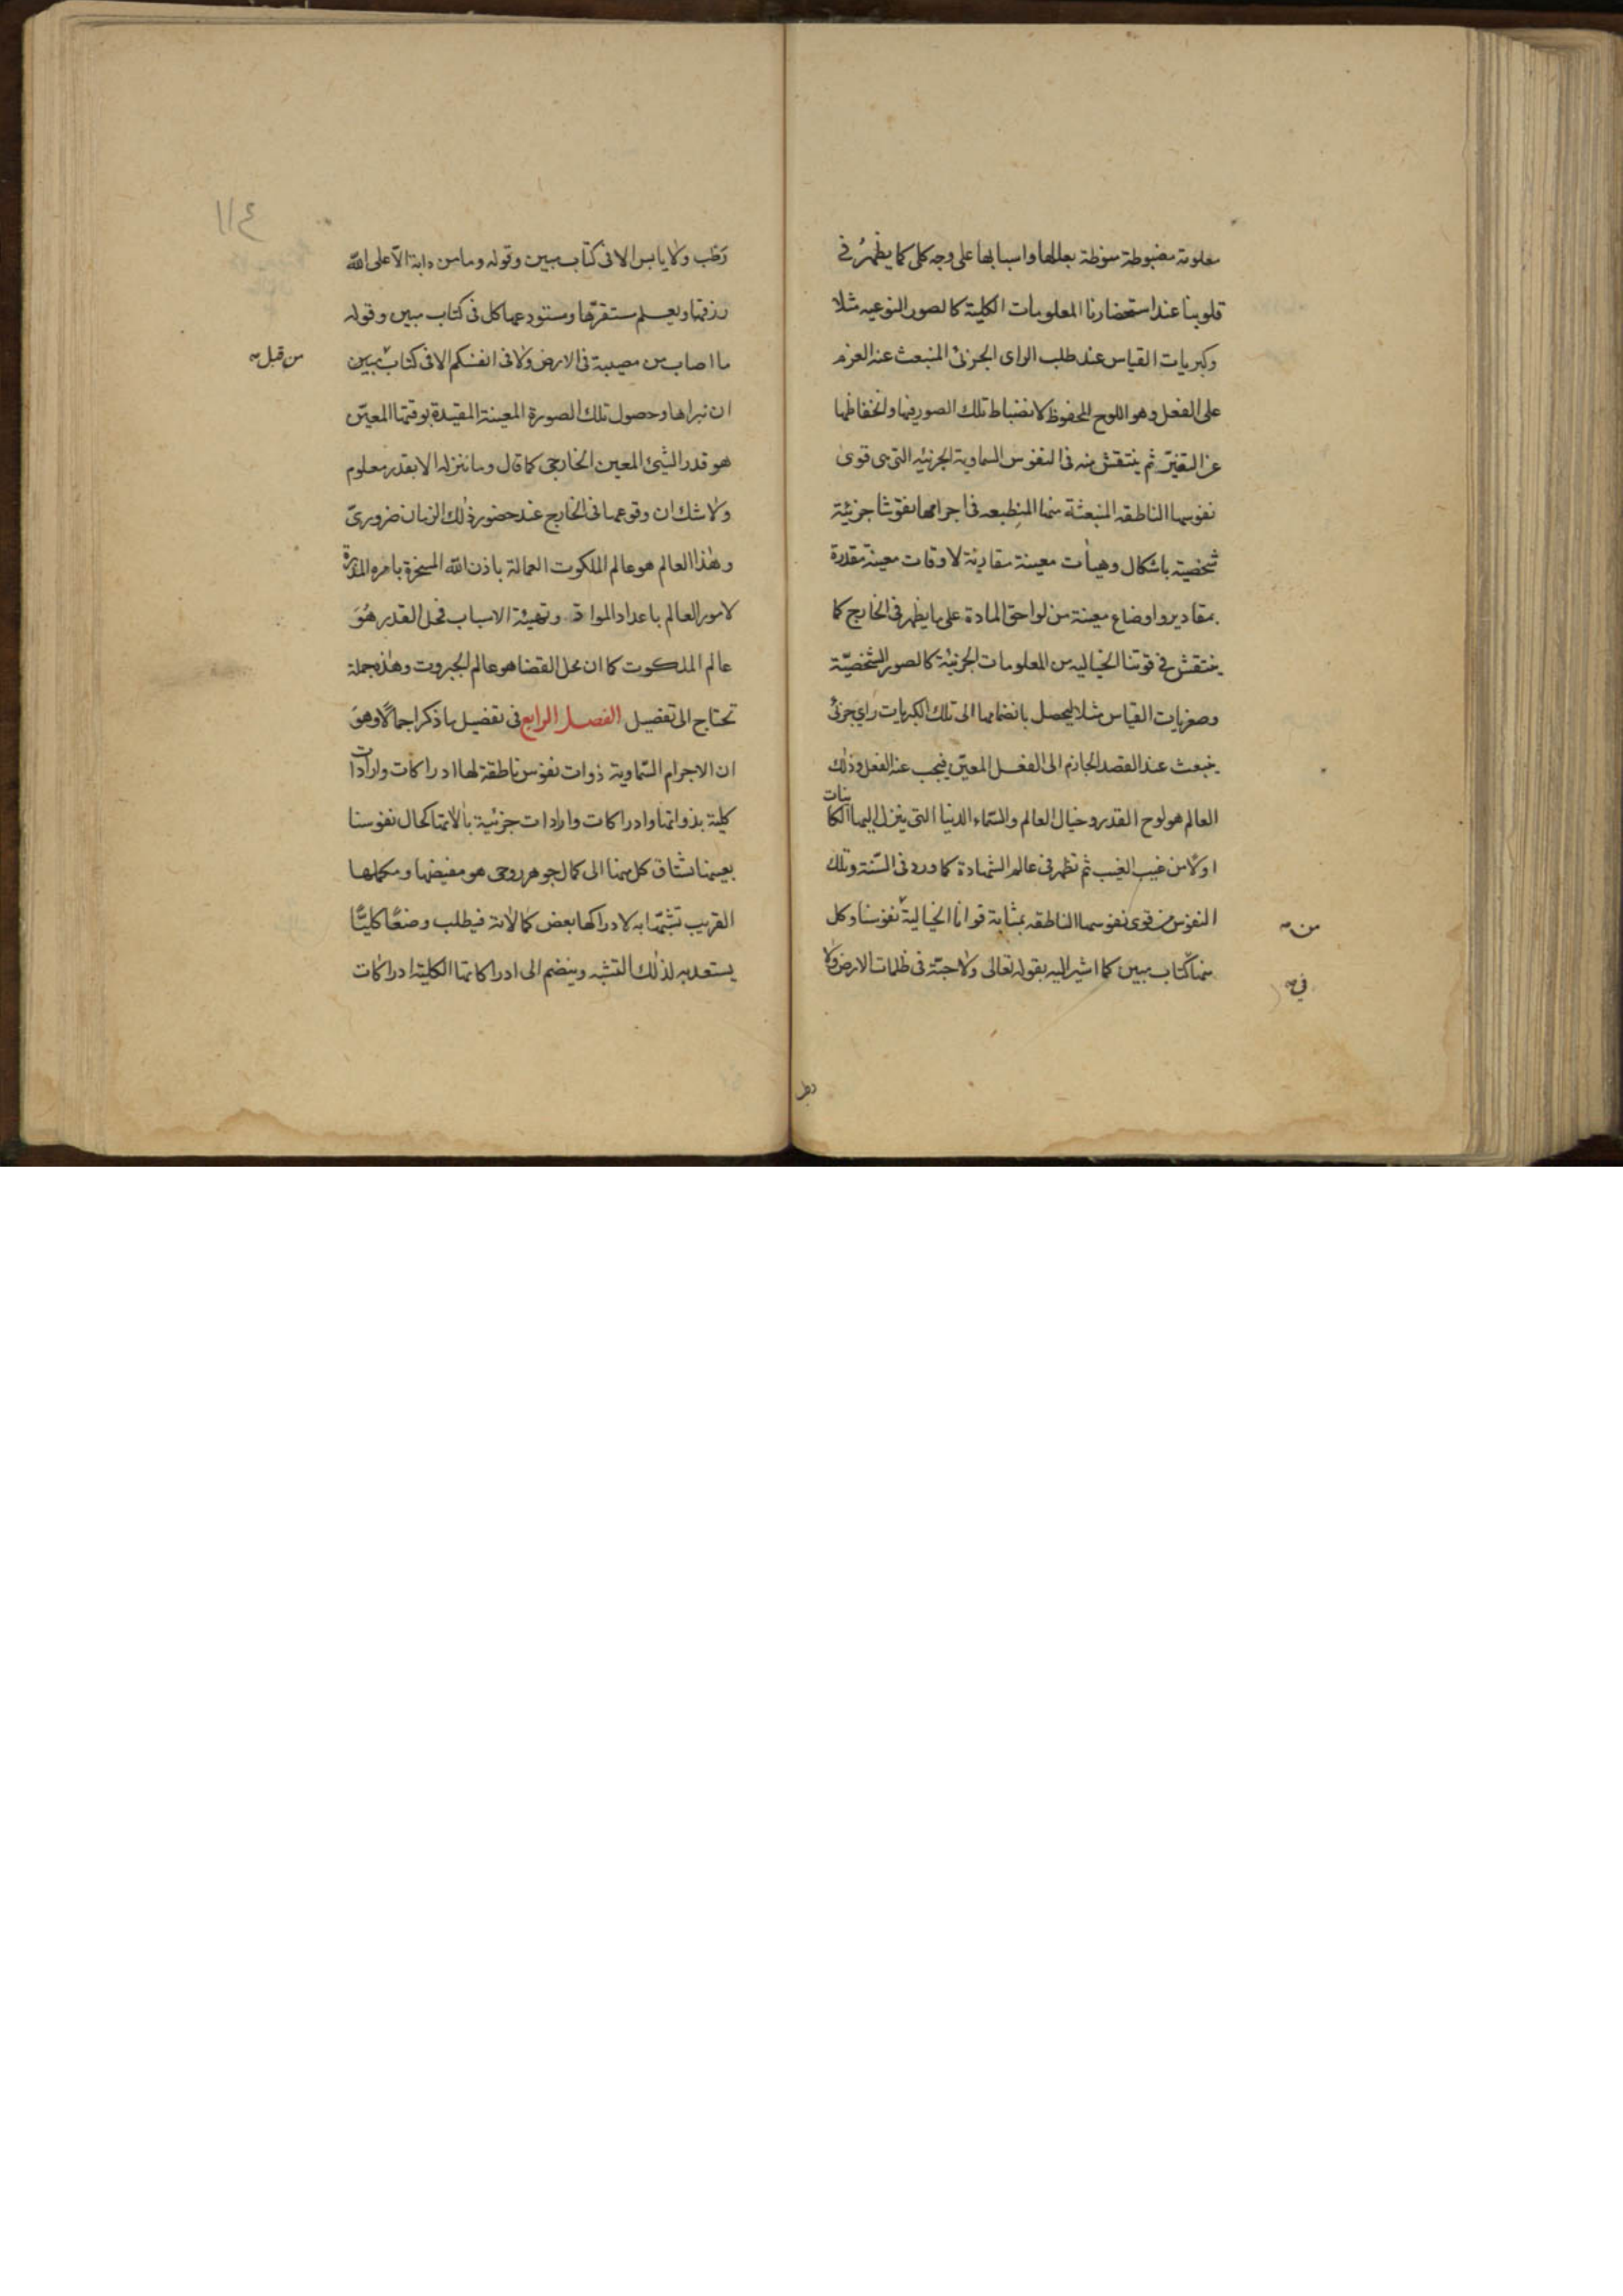 معلومة مضبوطة منوطة بعللها واسبابها على وجه كلى كما يظهرُ فى
قلوبنا عند استحضارنا المعلومات الكلية كالصور النوعيه مثلا
وكبريات القياس عند طلب الراى الجزئى المنبعث عنه العزم
على الفعل وهو اللوح المحفوظ لانضباط تلك الصور فيها وانحفاظها
عن التغيّر ثم ينتقش منه فى النفوس السماوية الجزئيه التى هى قوى
نفوسها الناطقه المنبعثة منها المنطبعه فى اجرامها نقوشا جزئية
شخصية باشكال وهيأت معينة مقارنة لاوقات معينة مقدرة
بمقادير واوضاع معينة من لواحق المادة على ما يظهر فى الخارج كما
ينتقش فى قوتنا الخياليه من المعلومات الجزئية كالصور الشخصيّة
وصغريات القياس مثلا ليحصل بانضمامها الى تلك الكبريات راى جزئى
ينبعث عنه القصد الجازم الى الفعل المعيّن فيجب عنه الفعل وذلك
العالم هو لوح القدر وخيال العالم والسّماء الدنيا التى ينزل اليها الكائنات
اولًا من غيب الغيب ثم تظهر فى عالم الشهادة كما ورد فى السّنة وتلك
النفوس من قوى نفوسها الناطقه بمثابة قوانا الخيالية نفوسنا وكل
من
منها كتاب مبين كما اشير اليه بقوله تعالى ولا حبّة فى ظلمات الارض ولا
فى
رطب
١١٤
رَطب ولا يابس الا فى كتاب مبين وقوله وما من دابة الّا على الله
رزقها ويعلم مستقرّها ومستودعها كل فى كتاب مبين وقوله
ما اصاب من مصيبة فى الارض ولا فى انفسكم الا فى كتاب مبين
من قبل
ان نبراها وحصول تلك الصورة المعينة المقيدة بوقتها المعيّن
هو قدر الشئ المعين الخارجى كما قال وما ننزله الا بقدر معلوم
ولا شك ان وقوعها فى الخارج عند حضور ذلك الزمان ضرورىّ
وهذا العالم هو عالم الملكوت العمالة باذن الله المسخرة بامره المدبرة
لامور العالم باعداد المواد وتهيئة الاسباب فمحل القدر هُوَ
عالم الملكوت كما ان محل القضا هو عالم الجبروت وهذه جملة
تحتاج الى تفصيل الفصل الرابع فى تفصيل ما ذكر اجمالًا وهو
ان الاجرام السّماوية ذوات نفوس ناطقة لها ادراكات وارادات
كلية بذواتها وادراكات وارادات جزئية بآلاتها كحال نفوسنا
بعينها تشتاق كل منها الى كمال جوهر روحى هو مفيضها ومكملها
القريب تشبّها به لادراكها بعض كمالاته فيطلب وضعًا كليًّا
يستعد به لذلك التشبه وينضم الى ادراكاتها الكلية ادراكات